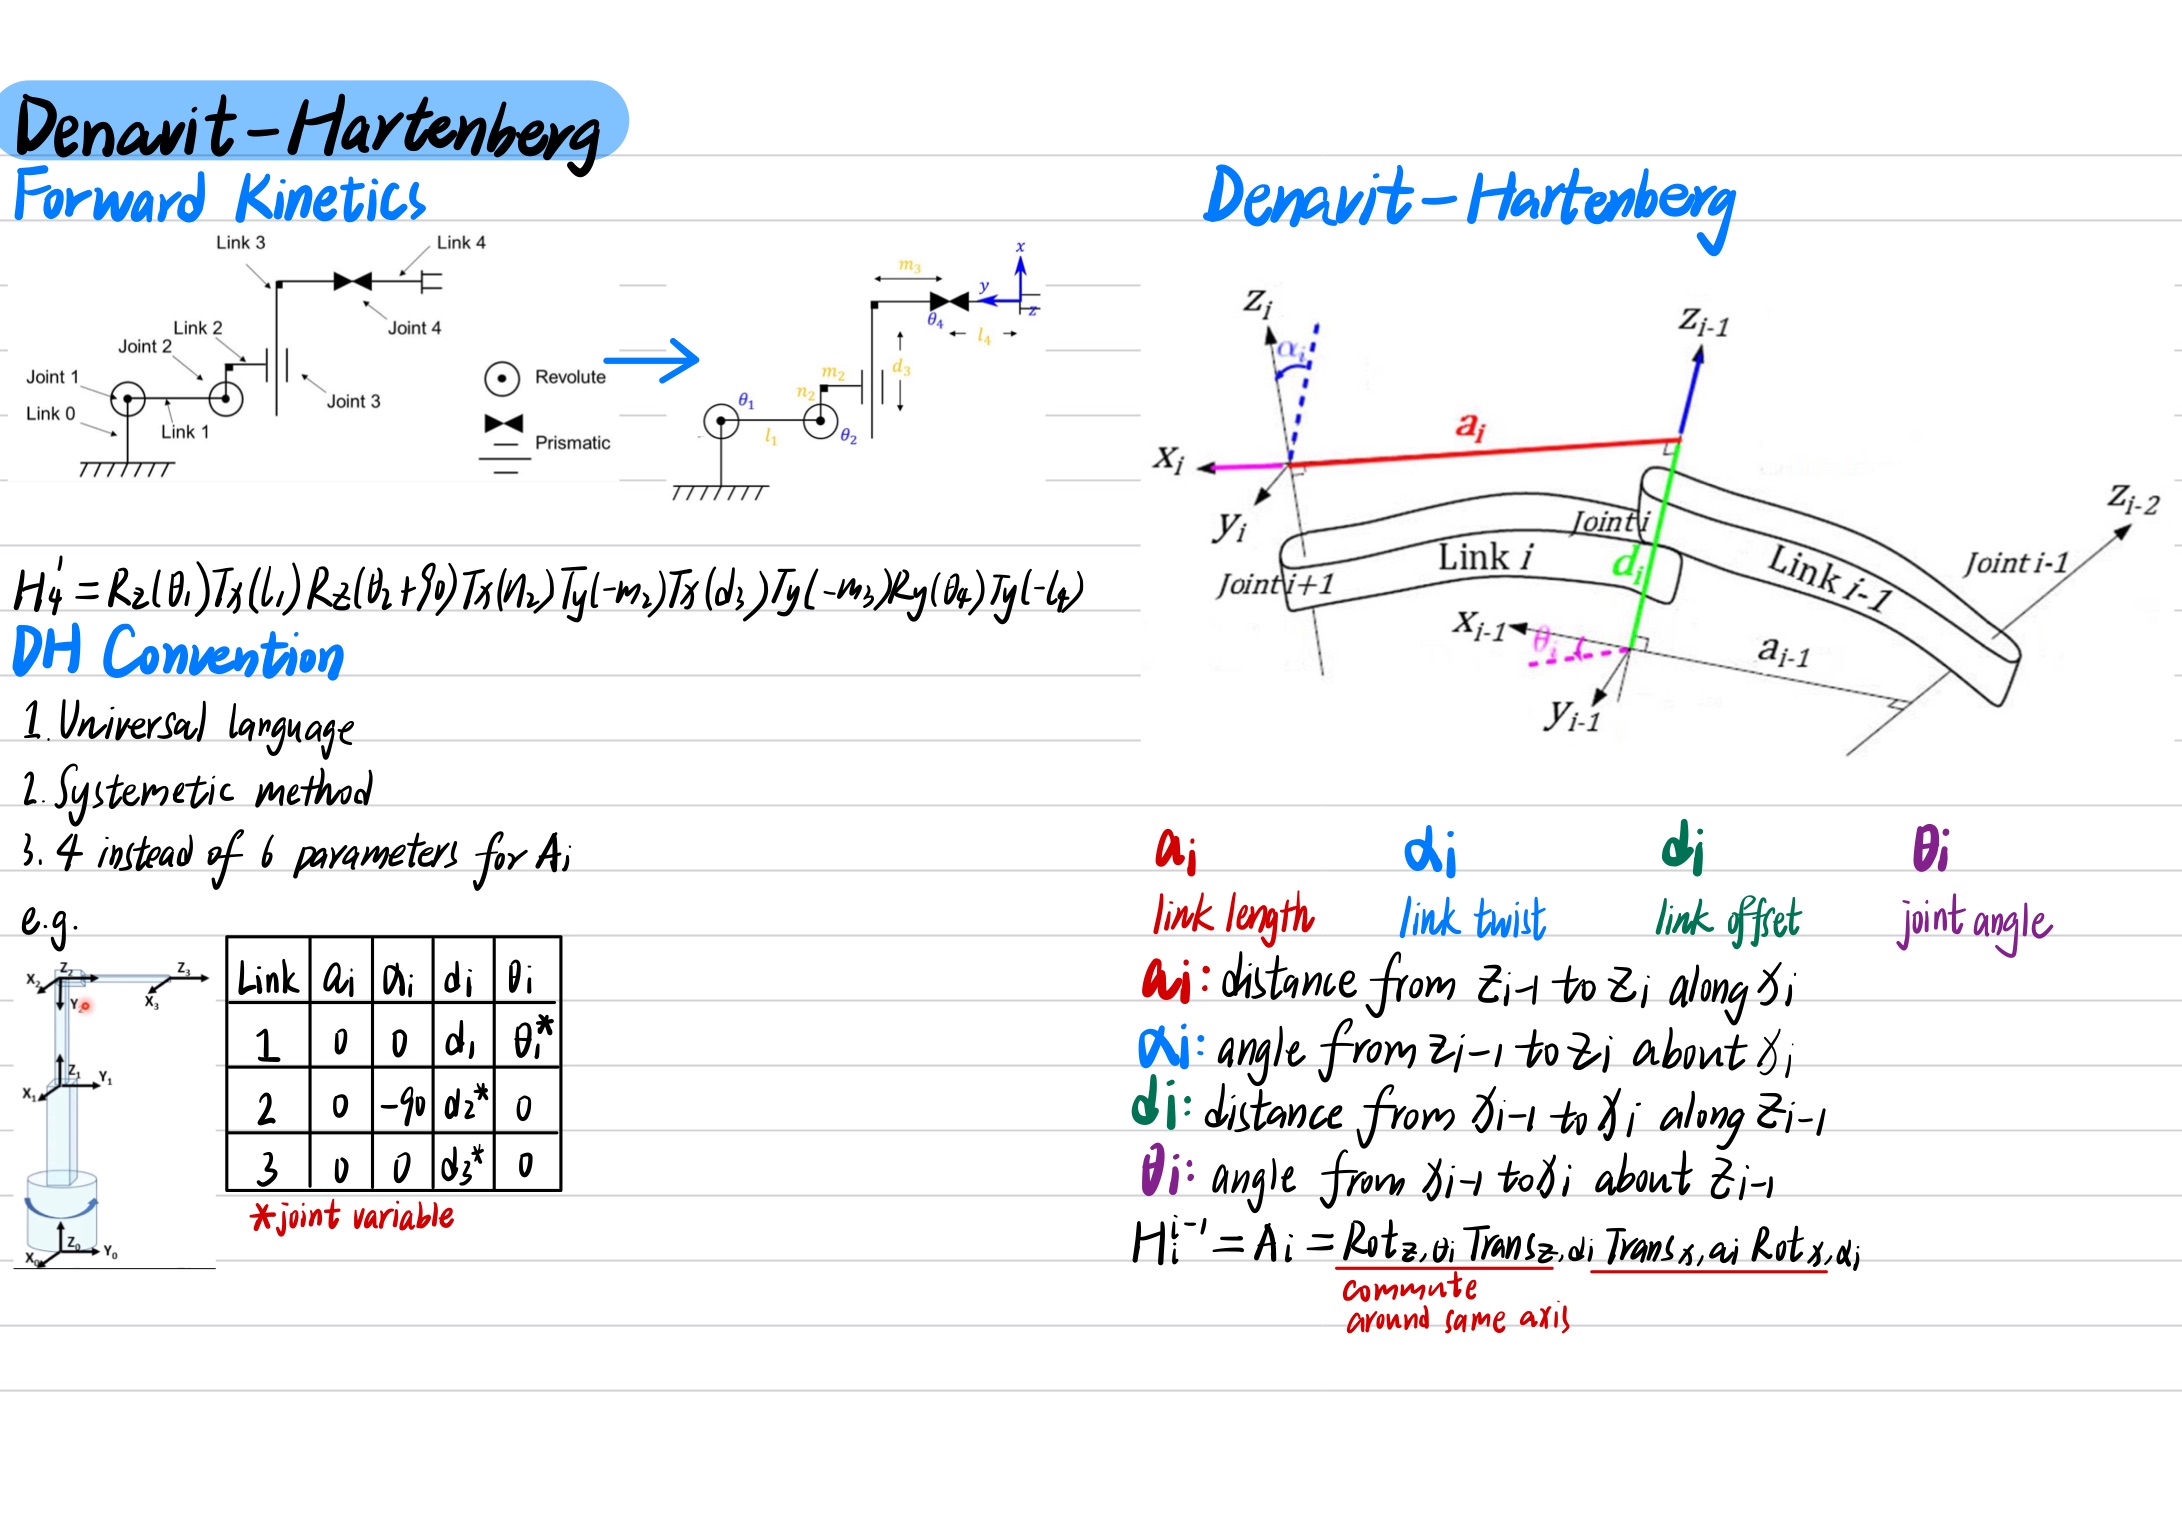 Denavit-Hartenberg
Forward Kinetics
Link 3
Link 4
Link 2
Joint 4
Joint 2
Joint 1
Revolute
Joint 3
Link 0
Link 1
Prismatic
m₃
x
y
z
θ₄
l₄
m₂
d₃
n₂
θ₁
l₁
θ₂
H₄¹ = Rz(θ₁)Tx(l₁)Rz(θ₂+90)Tx(n₂)Ty(-m₂)Tx(d₃)Ty(-m₃)Ry(θ₄)Ty(-l₄)
DH Convention
1. Universal language
2. Systemetic method
3. 4 instead of 6 parameters for Ai
e.g.
X₂ Z₂ Z₃
Y₂ X₃
Z₁ Y₁
X₁
Z₀ Y₀
X₀
Link ai αi di θi
1 0 0 d₁ θ₁*
2 0 -90 d₂* 0
3 0 0 d₃* 0
*joint variable
Denavit-Hartenberg
zi
zi-1
αi
ai
xi
zi-2
yi
Joint i
Link i
di
Joint i-1
Joint i+1
Link i-1
xi-1
θi
ai-1
yi-1
ai αi di θi
link length link twist link offset joint angle
ai: distance from zi-1 to zi along xi
αi: angle from zi-1 to zi about xi
di: distance from xi-1 to xi along zi-1
θi: angle from xi-1 to xi about zi-1
Hᵢⁱ⁻¹ = Ai = Rotz,θi Transz,di Transx,ai Rotx,αi
commute
around same axis